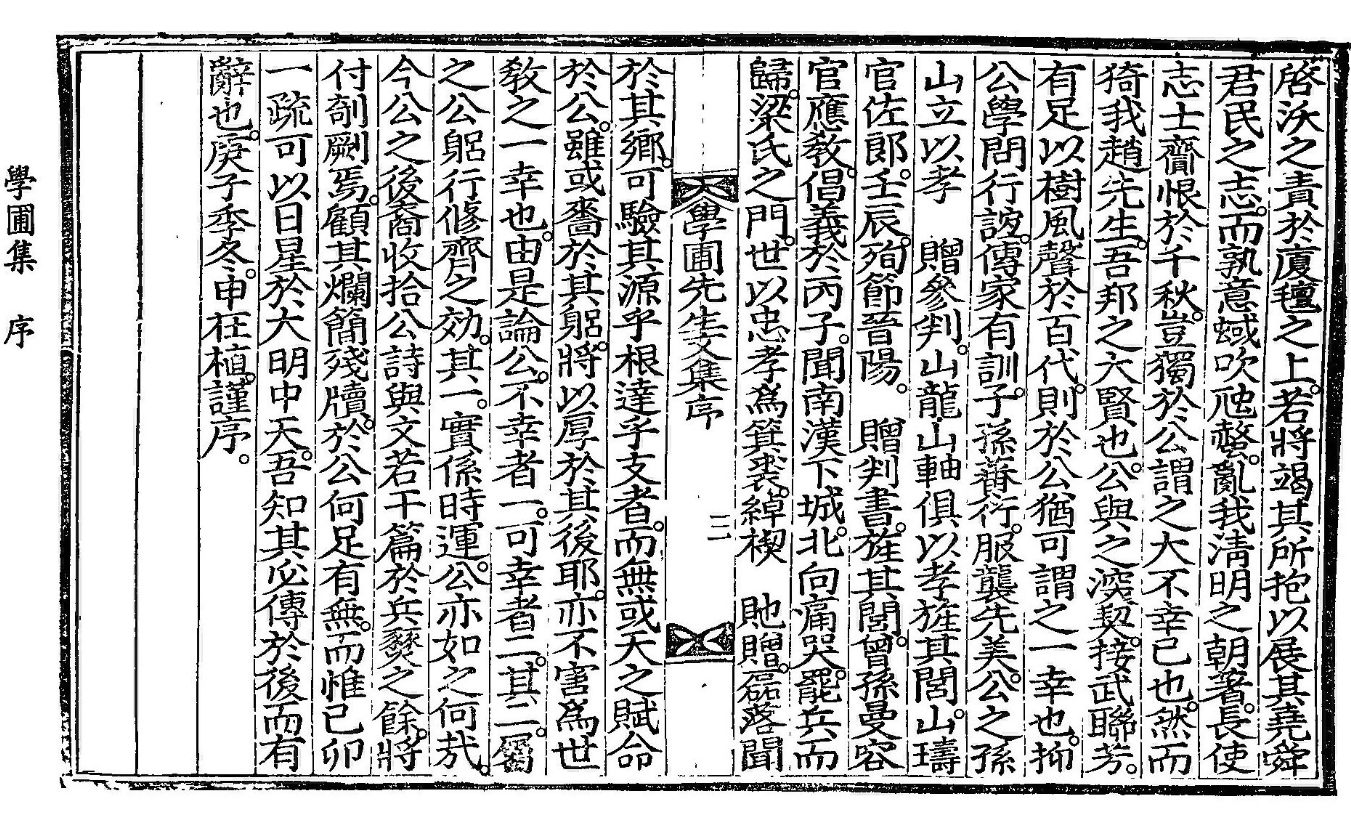 啓沃之責於廈氊之上。若將竭其所抱以展其堯舜
君民之志。而孰意蜮吹虺螫。亂我淸明之朝著。長使
志士齎恨於千秋。豈獨於公謂之大不幸已也。然而
猗我趙先生。吾邦之大賢也。公與之深契。接武聯芳。
有足以樹風聲於百代。則於公猶可謂之一幸也。抑
公學問行誼。傳家有訓。子孫蕃衍。服襲先美。公之孫
山立以孝 贈參判。山龍山軸俱以孝旌其閭。山璹
官佐郞。壬辰。殉節晉陽。 贈判書。旌其閭。曾孫曼容
官應敎。倡義於丙子。聞南漢下城。北向痛哭。罷兵而
歸。梁氏之門。世以忠孝爲箕裘。綽楔 貤贈。磊落聞
學圃先生文集序 三
於其鄕。可驗其源乎根達乎支者。而無或天之賦命
於公。雖或嗇於其躬。將以厚於其後耶。亦不害爲世
敎之一幸也。由是論公。不幸者一。可幸者二。其二。屬
之公躬行修齊之効。其一。實係時運。公亦如之何哉。
今公之後裔收拾公詩與文若干篇於兵燹之餘。將
付剞劂焉。顧其爛簡殘牘。於公何足有無。而惟己卯
一疏可以日星於大明中天。吾知其必傳於後而有
辭也。庚子季冬。申在植。謹序。
學圃集 序